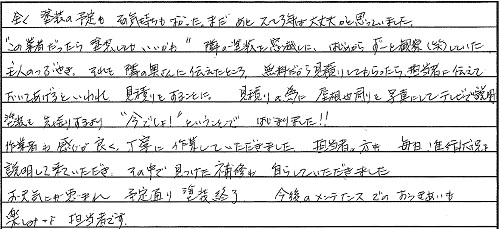 全く塗装の予定も お気持ちも なった。まだ あと 2〜3年は大丈夫かと思っていました。
"この業者だったら塗装してもいいかも" 隣の塗装を窓越しに、はじめから ずーと観察(笑)していた
主人のつぶやき。それを隣の奥さんに伝えたところ、無料だから見積りしてもらったら、担当者に伝えて
おいてあげるといわれ 見積りをすることに。 見積りの為に 屋根や周りを写真にしてテレビで説明
塗装を先送りするより "今でしょ!" ということで はじまりました!!
作業者も感じが良く、丁寧に作業していただきました。担当者の方も 毎日進行状況を
説明して来ていただき その中で見つけた補修も 直していただきました
お天気にも恵まれ 予定通り 塗装終了 今後のメンテナンスでの おつきあいも
楽しみな 担当者です。